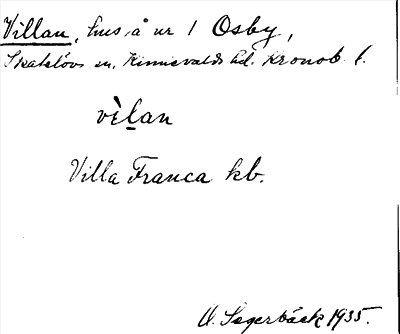 Villan, hus å nr 1 Osby,
Skatelövs sn, Kinnevalds hd. Kronob. l.
vèl̠an
Villa Franca kb.
A. Segerbäck 1935.